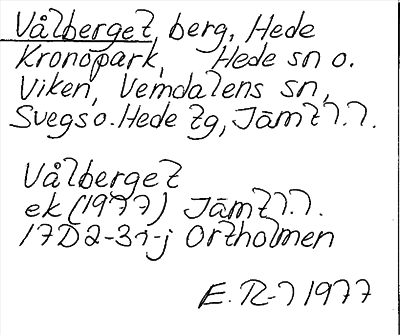 Vålberget, berg, Hede
Kronopark, Hede sn o.
Viken, Vemdalens sn,
Svegs o. Hede tg, Jämtl.l.
Vålberget
ek (1977) Jämtl.l.
17D 2-3i-j Ortholmen
E. R-l 1977